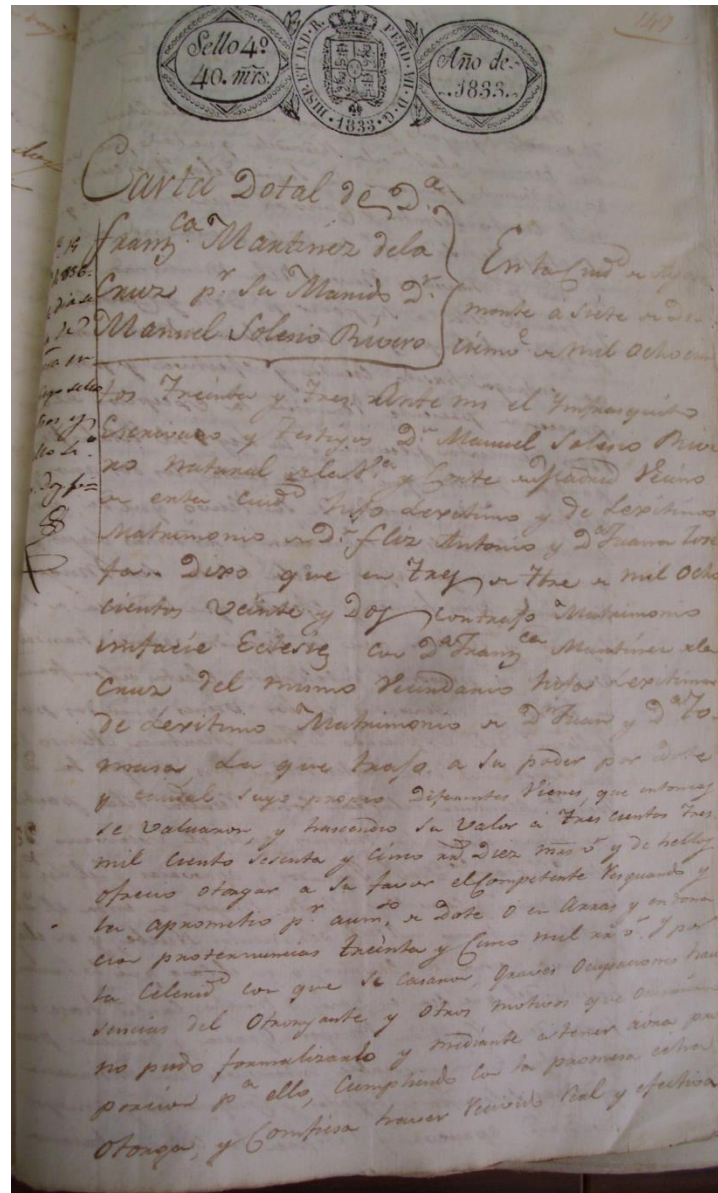 Sello 4º
40. mrs.
HISP. ET IND. R. FERD. VII. D. G.
1833.
Año de
1833.
Carta Dotal de Dª
Franzca Martinez dela
Cruz pr. Su Marido Dn.
Manuel Solesio Rivero
En la Ciud de Aya
monte a Siete de De
ciemº de mil ochocien
tos treinta y tres Ante mi el Infrasquito
Escrivano y testigos Dn Manuel Solesio Rive
ro natural de la Vª y Corte de Madrid Vecino
de esta Ciud hijo Lexitimo y de Lexitimo
Matrimonio de Dn Antonio y Dª Juana Jose
fa. Dixo que en tres de mil ocho
cientos veinte y Dos contrajo Matrimonio
infacie Eclesie con Dª Franzca Martinez dela
Cruz del mismo Vecindario hija Lexitima
de Lexitimo Matrimonio de Dn Juan y Dª To
masa, La que trajo a su poder por Dote
y caudal suyo propio Diferentes Vienes, que entonces
se valuaron, y hascendio su valor a trescientos tres
mil ciento sesenta y cinco rs Diez mrs vº y de hellos
ofrecio otorgar a su favor el Competente Resguardo y
la aprometio pr aumto de Dote o en Arras y en dona
cion proternuncias treinta y cinco mil rs vº. y por
la Celerid con que se casaron, graves ocupaciones
del Otorgante y otros motivos que
no pudo formalizarlo y mediante a tener aora pro
porcion pª ello, Cumpliendo con la promesa echa
Otorga, y Confiesa haver Recivido Real y efectiva